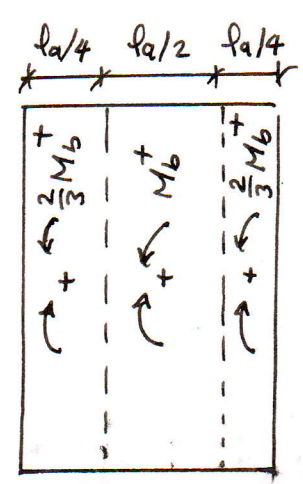 la/4 la/2 la/4
2/3 Mb+ Mb+ 2/3 Mb+
+ + +